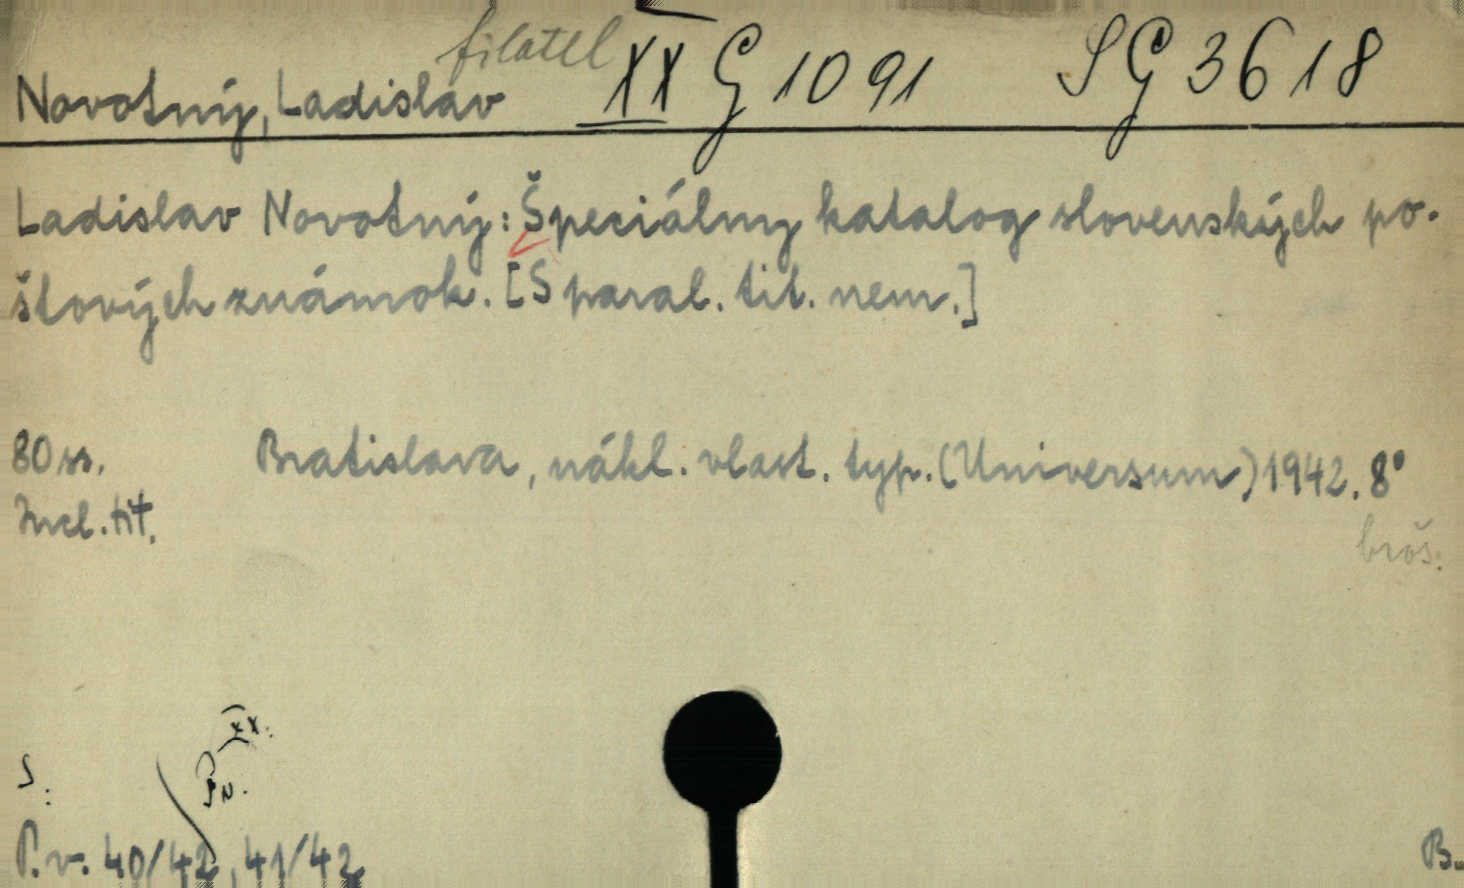 filatel XX G 1091 SG 3618
Novotný, Ladislav
Ladislav Novotný: Špeciálny katalog slovenských po-
štových známok. [S paral. tit. nem.]
80 ss. Bratislava, nákl. vlast. typ. (Universum) 1942. 8°
Incl. tit.
broš.
XX.
S.
P.v. 40/42, 41/42
B.